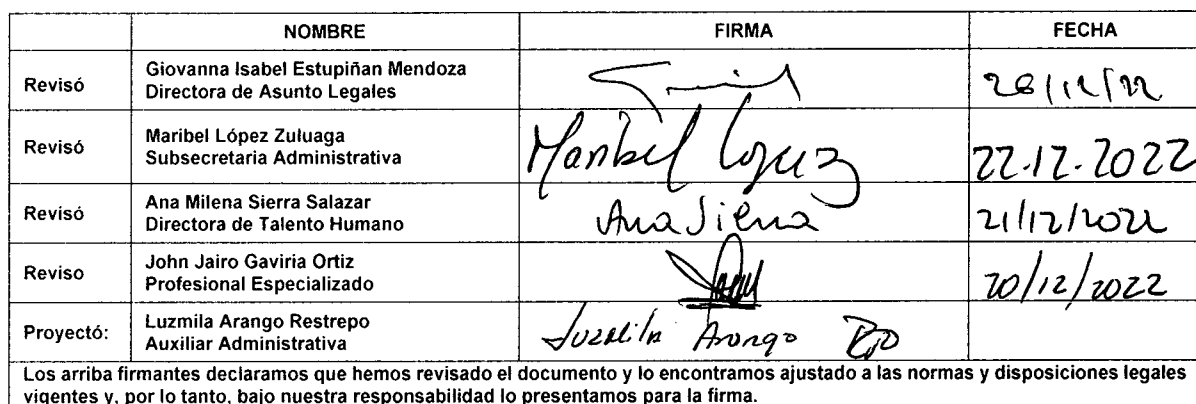 NOMBRE FIRMA FECHA
Revisó Giovanna Isabel Estupiñan Mendoza
Directora de Asunto Legales 26/12/22
Revisó Maribel López Zuluaga
Subsecretaria Administrativa Maribel López 22.12.2022
Revisó Ana Milena Sierra Salazar
Directora de Talento Humano Ana Sierra 21/12/2022
Reviso John Jairo Gaviria Ortiz
Profesional Especializado 20/12/2022
Proyectó: Luzmila Arango Restrepo
Auxiliar Administrativa Luzmila Arango Rpo
Los arriba firmantes declaramos que hemos revisado el documento y lo encontramos ajustado a las normas y disposiciones legales
vigentes y, por lo tanto, bajo nuestra responsabilidad lo presentamos para la firma.